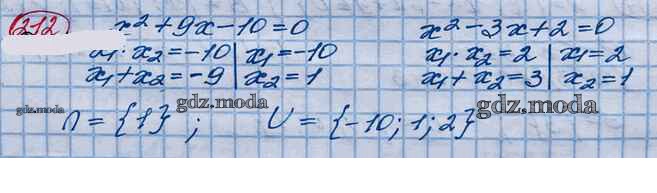 212 x²+9x-10=0 x²-3x+2=0
x₁·x₂=-10 | x₁=-10 x₁·x₂=2 | x₁=2
x₁+x₂=-9 | x₂=1 x₁+x₂=3 | x₂=1
gdz.moda gdz.moda gdz.moda
∩={1}; ∪={-10;1;2}